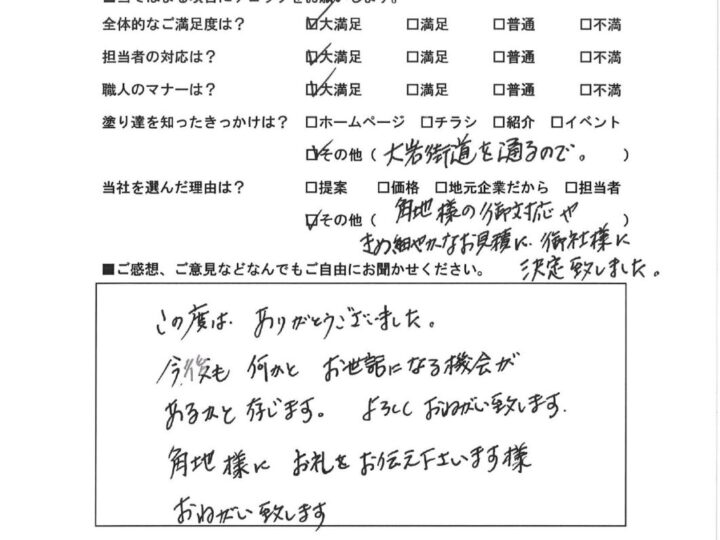 ■当てはまる項目にチェックをお願いします。
全体的なご満足度は？ ☑大満足 □満足 □普通 □不満
担当者の対応は？ ☑大満足 □満足 □普通 □不満
職人のマナーは？ ☑大満足 □満足 □普通 □不満
塗り達を知ったきっかけは？ □ホームページ □チラシ □紹介 □イベント
☑その他（ 大岩街道を通るので。 ）
当社を選んだ理由は？ □提案 □価格 □地元企業だから □担当者
☑その他（ 角地様の御対応や
きめ細やかなお見積に、御社様に
決定致しました。
■ご感想、ご意見などなんでもご自由にお聞かせください。
この度は、ありがとうございました。
今後も 何かと お世話になる機会が
あるかと存じます。 よろしくおねがい致します。
角地様に お礼をお伝え下さいます様
おねがい致します